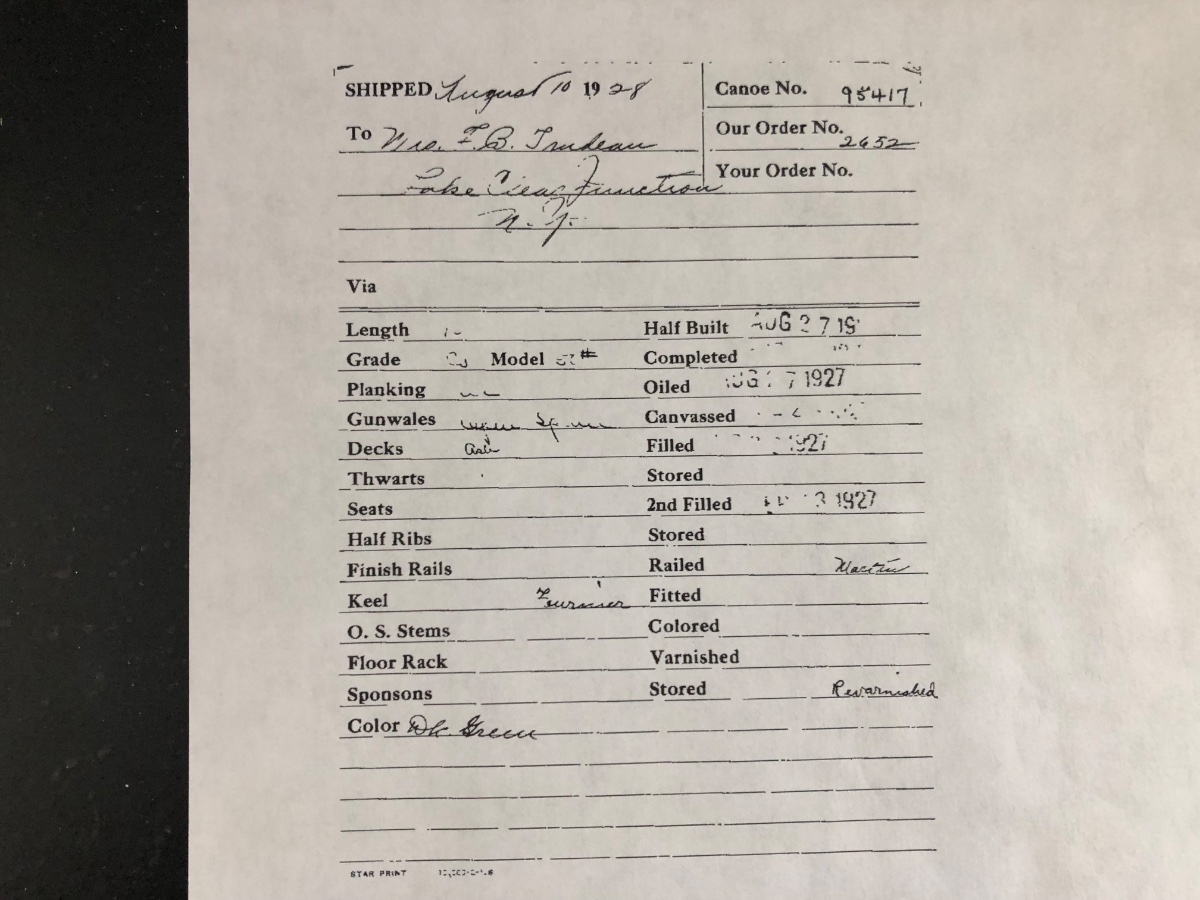 SHIPPED August 10 1928 Canoe No. 95417
To Mrs. F.B. Trudeau Our Order No. 2652
Lake Clear Junction Your Order No.
N.Y.
Via
Length Half Built AUG 27 19
Grade Model Completed
Planking Oiled 1927
Gunwales Canvassed
Decks ash Filled 1927
Thwarts Stored
Seats 2nd Filled 3 1927
Half Ribs Stored
Finish Rails Railed
Keel Fournier Fitted
O. S. Stems Colored
Floor Rack Varnished
Sponsons Stored Revarnished
Color Dk. Green
STAR PRINT